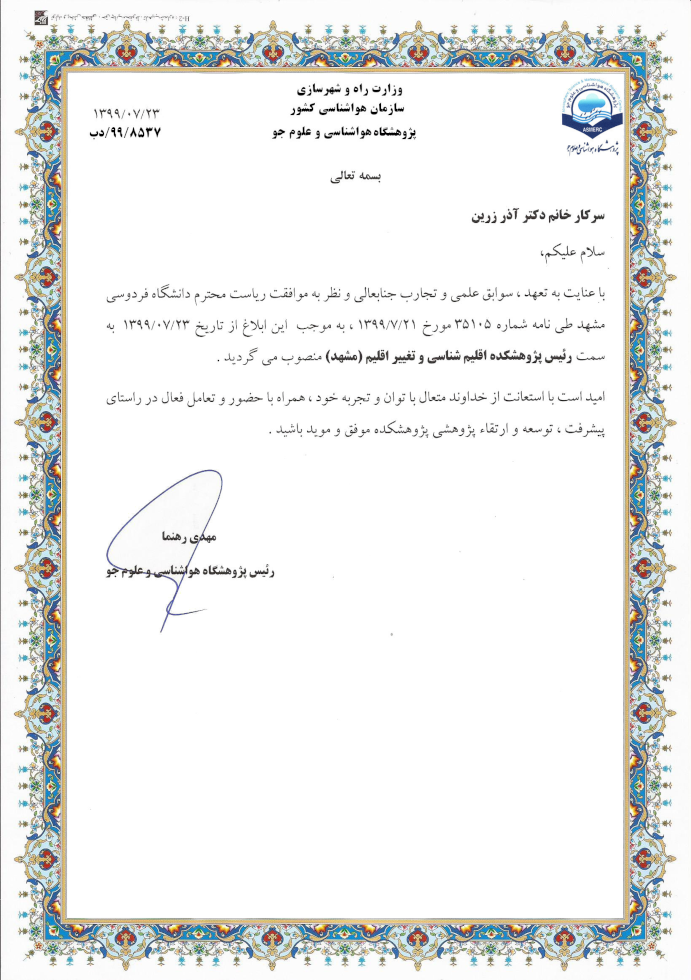 وزارت راه و شهرسازی
سازمان هواشناسی کشور
پژوهشگاه هواشناسی و علوم جو
۱۳۹۹/۰۷/۲۳
۹۹/۸۵۳۷/دب
ASMERC
بسمه تعالی
سرکار خانم دکتر آذر زرین
سلام علیکم،
با عنایت به تعهد ، سوابق علمی و تجارب جنابعالی و نظر به موافقت ریاست محترم دانشگاه فردوسی
مشهد طی نامه شماره ۳۵۱۰۵ مورخ ۱۳۹۹/۷/۲۱ ، به موجب این ابلاغ از تاریخ ۱۳۹۹/۰۷/۲۳ به
سمت رئیس پژوهشکده اقلیم شناسی و تغییر اقلیم (مشهد) منصوب می گردید .
امید است با استعانت از خداوند متعال با توان و تجربه خود ، همراه با حضور و تعامل فعال در راستای
پیشرفت ، توسعه و ارتقاء پژوهشی پژوهشکده موفق و موید باشید .
مهدی رهنما
رئیس پژوهشگاه هواشناسی و علوم جو